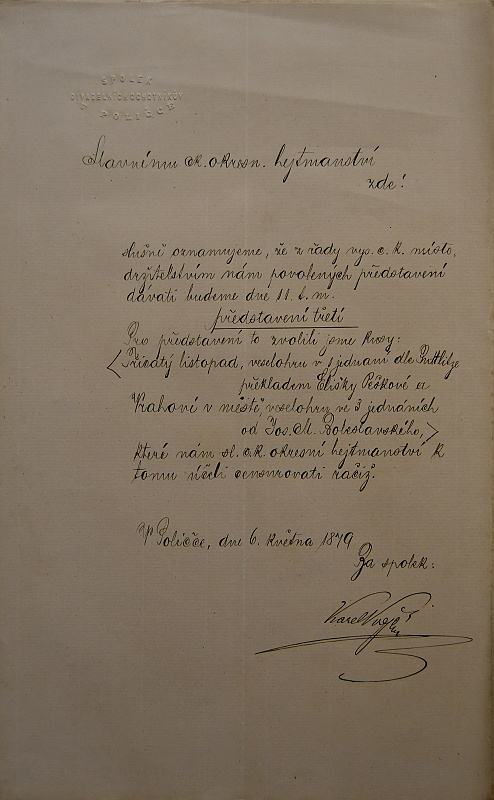 SPOLEK
DIVADELNÍCH OCHOTNÍKŮV
V POLIČCE
Slavnému ck. okresn. hejtmanství
zde!
Slušně oznamujeme, že z řady vys. c. k. místo,
držitelstvím nám povolených představení
dávati budeme dne 11. t. m.
představení třetí
Pro představení to zvolili jsme kusy:
Třicátý listopad, veselohru v 1 jednání dle Puttlitze
překladem Elišky Peškové a
Vrahové v městě, veselohru ve 3 jednáních
od Jos. M. Boleslavského,
které nám sl. ck. okresní hejtmanství k
tomu účeli censurovati račiž.
V Poličce, dne 6. května 1879
Za spolek:
Karel